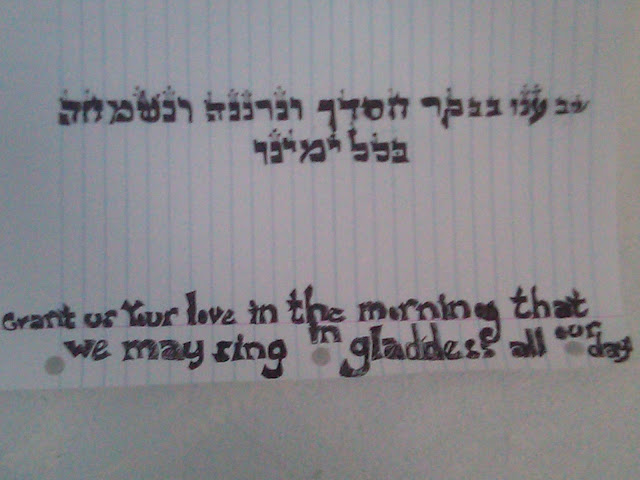 שבענו בבקר חסדך ונרננה ונשמחה
בכל ימינו
Grant us Your love in the morning that
we may sing in gladdess all our day